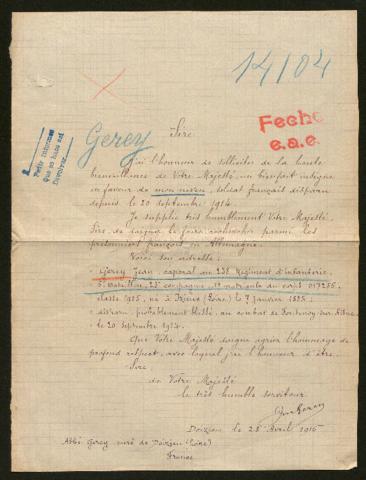 14/04
Fecho
e.a.e.
Gerey
Sire
J'ai l'honneur de solliciter de la haute
bienveillance de Votre Majesté, un bienfait insigne
en faveur de mon neveu, soldat français disparu
depuis le 20 septembre 1914.
Je supplie très humblement Votre Majesté,
Sire, de daigne le faire rechercher parmi les
prisonniers français en Allemagne.
Voici son adresse :
Gerey Jean, caporal au 238e Régiment d'infanterie,
5e Bataillon, 23e compagnie, nº matricule du corps 017255,
classe 1915, né à Doizieu (Loire) le 7 janvier 1895.
disparu, probablement blessé, au combat de Fontenoy-sur-Aisne
le 20 septembre 1914.
Que Votre Majesté daigne agréer l'hommage du
profond respect, avec lequel j'ai l'honneur d'être,
Sire,
de Votre Majesté
le très humble serviteur.
Doizieu le 28 Avril 1915
Abbé Gerey curé de Doizieu (Loire)
France